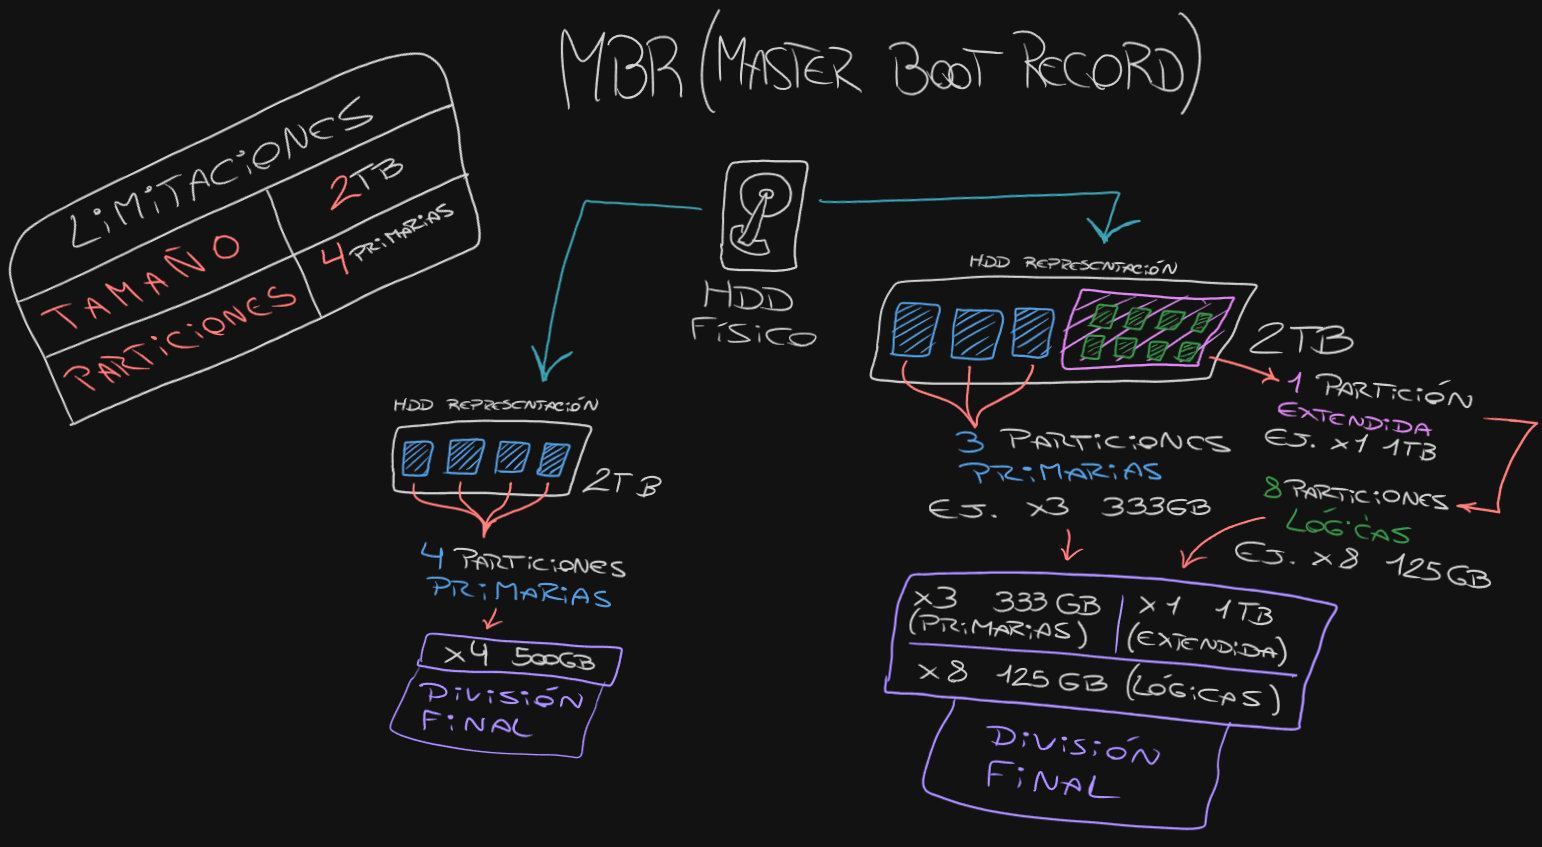 MBR (MASTER BOOT RECORD)
LIMITACIONES
TAMAÑO 2TB
PARTICIONES 4 PRIMARIAS
HDD
FÍSICO
HDD REPRESENTACIÓN
2TB
4 PARTICIONES
PRIMARIAS
x4 500GB
DIVISIÓN
FINAL
HDD REPRESENTACIÓN
2TB
3 PARTICIONES
PRIMARIAS
EJ. x3 333GB
1 PARTICIÓN
EXTENDIDA
EJ. x1 1TB
8 PARTICIONES
LÓGICAS
EJ. x8 125GB
x3 333GB (PRIMARIAS)
x1 1TB (EXTENDIDA)
x8 125GB (LÓGICAS)
DIVISIÓN
FINAL